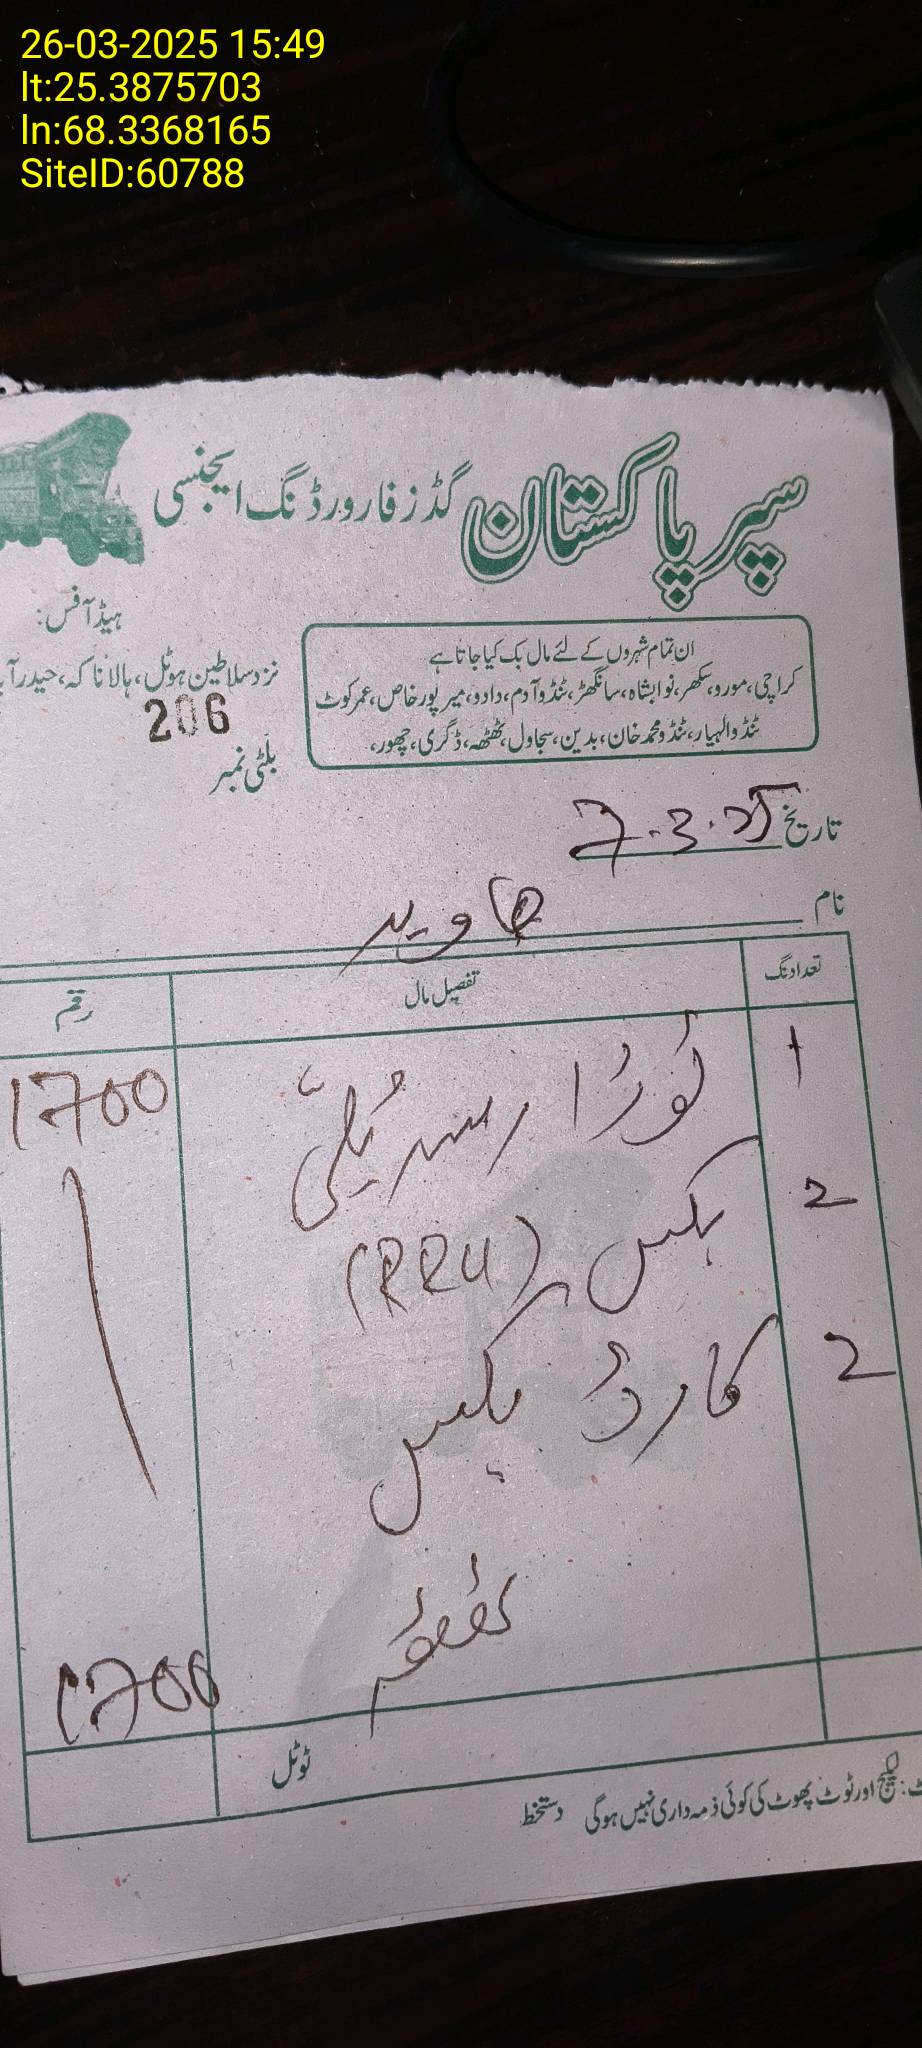 26-03-2025 15:49
lt:25.3875703
ln:68.3368165
SiteID:60788
سپر پاکستان گڈز فارورڈنگ ایجنسی
ہیڈ آفس:
نزد سلاطین ہوٹل، ہالا ناکہ، حیدرآ
206
بلٹی نمبر
ان تمام شہروں کے لئے مال بک کیا جاتا ہے
کراچی، مورو، سکھر، نوابشاہ، سانگھڑ، ٹنڈوآدم، دادو، میرپورخاص، عمرکوٹ
ٹنڈوالہیار، ٹنڈومحمدخان، بدین، سجاول، ٹھٹھہ، ڈگری، چھور،
تاریخ 7.3.25
نام جاوید
تعداد نگ تفصیل مال رقم
1 1700
2 بکس (RRU)
2 کارڈ بکس
ٹھٹھہ
1700
ٹوٹل
لیکیج اور ٹوٹ پھوٹ کی کوئی ذمہ داری نہیں ہوگی دستخط